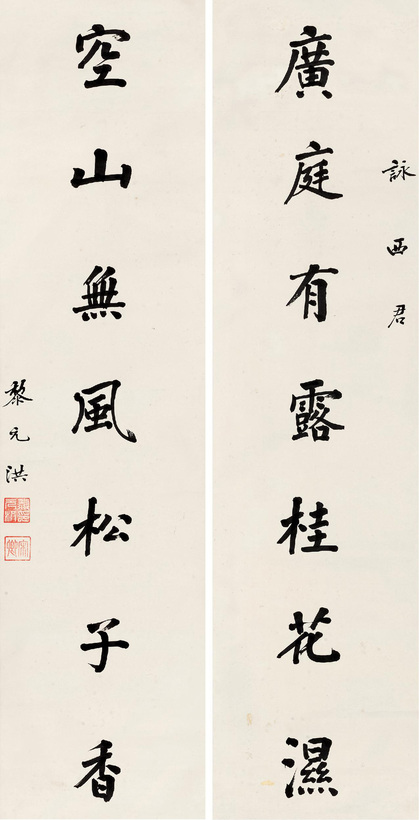 詠西君
廣庭有露桂花濕
空山無風松子香
黎元洪